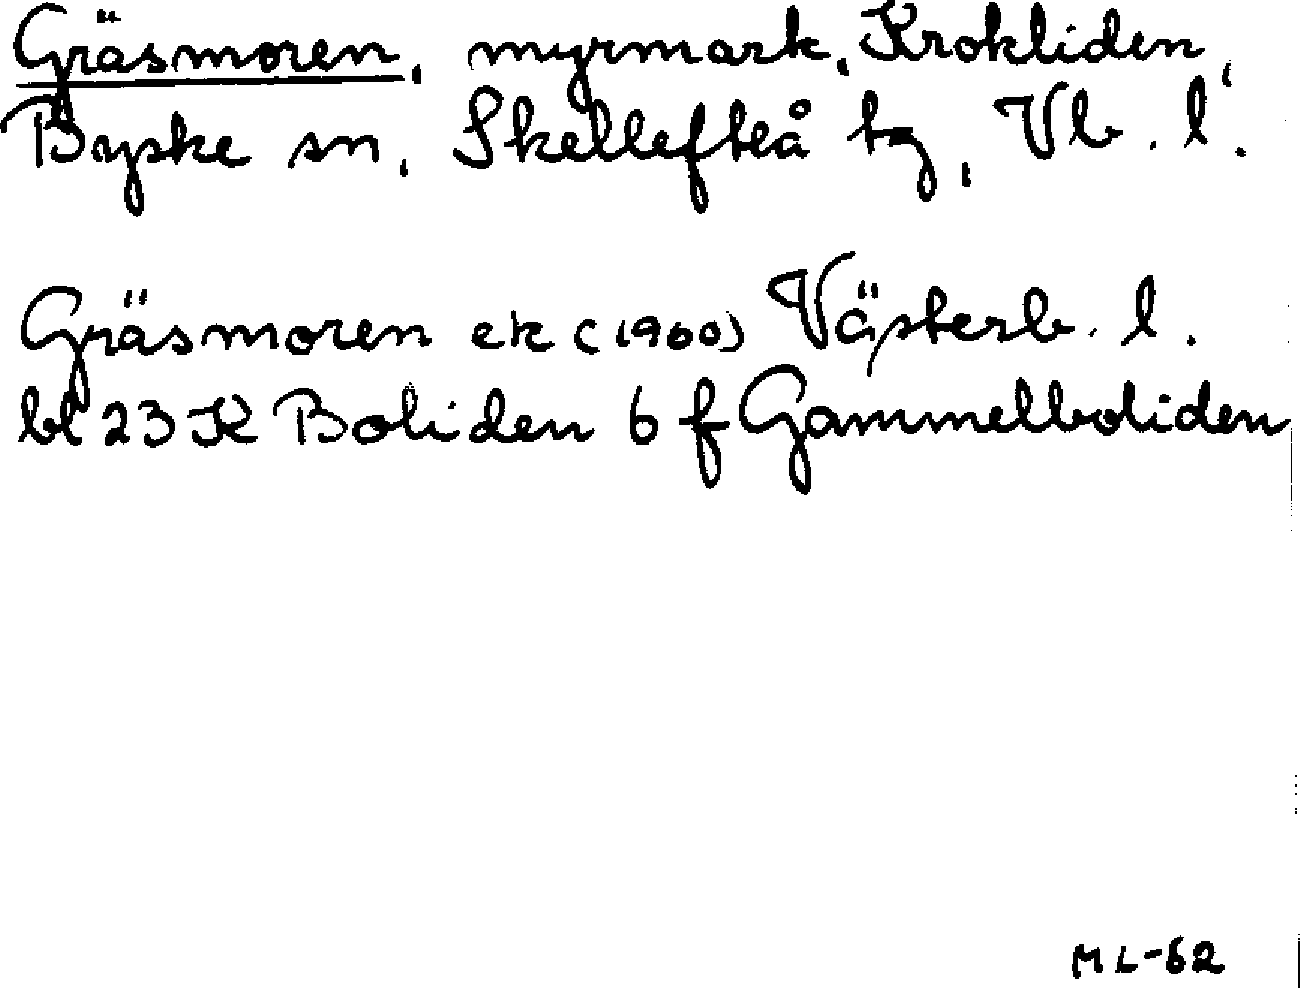 Gräsmoren, myrmark, Krokliden,
Byske sn, Skellefteå tg, Vb. l.
Gräsmoren ek (1960) Västerb. l.
bl 23 K Boliden 6 f Gammelboliden
ML-62